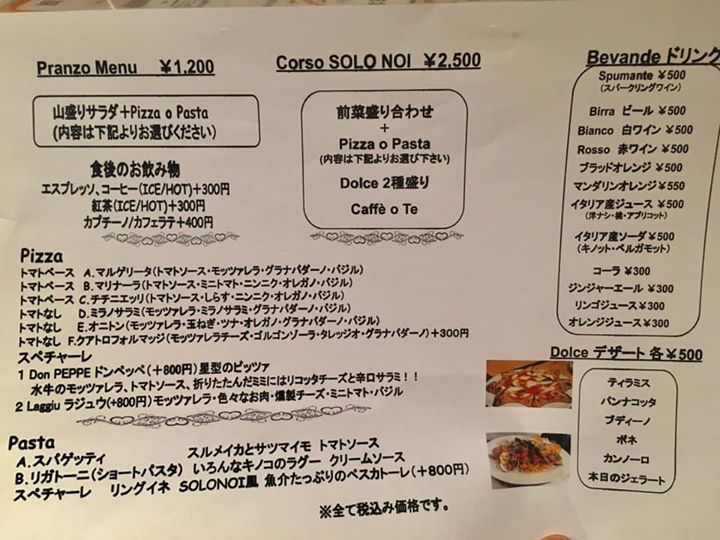 Pranzo Menu ¥1,200
山盛りサラダ+Pizza o Pasta
(内容は下記よりお選びください)
食後のお飲み物
エスプレッソ、コーヒー(ICE/HOT)+300円
紅茶(ICE/HOT)+300円
カプチーノ/カフェラテ+400円
Corso SOLO NOI ¥2,500
前菜盛り合わせ
+
Pizza o Pasta
(内容は下記よりお選び下さい)
Dolce 2種盛り
Caffè o Te
Bevande ドリンク
Spumante ¥500
(スパークリングワイン)
Birra ビール ¥500
Bianco 白ワイン ¥500
Rosso 赤ワイン ¥500
ブラッドオレンジ ¥500
マンダリンオレンジ ¥550
イタリア産ジュース ¥500
(洋ナシ・桃・アプリコット)
イタリア産ソーダ ¥500
(キノット・ベルガモット)
コーラ ¥300
ジンジャーエール ¥300
リンゴジュース¥300
オレンジジュース¥300
Pizza
トマトベース A.マルゲリータ(トマトソース・モッツァレラ・グラナパダーノ・バジル)
トマトベース B.マリナーラ(トマトソース・ミニトマト・ニンニク・オレガノ・バジル)
トマトベース C.チチニエッリ(トマトソース・しらす・ニンニク・オレガノ・バジル)
トマトなし D.ミラノサラミ(モッツァレラ・ミラノサラミ・グラナパダーノ・バジル)
トマトなし E.オニトン(モッツァレラ・玉ねぎ・ツナ・オレガノ・グラナパダーノ・バジル)
トマトなし F.クアトロフォルマッジ(モッツァレラチーズ・ゴルゴンゾーラ・タレッジオ・グラナパダーノ)+300円
スペチャーレ
1 Don PEPPE ドンペッペ (+800円) 星型のピッツァ
水牛のモッツァレラ、トマトソース、折りたたんだミミにはリコッタチーズと辛口サラミ!!
2 Laggiu ラジュウ(+800円) モッツァレラ・色々なお肉・燻製チーズ・ミニトマト・バジル
Pasta
A.スパゲッティ スルメイカとサツマイモ トマトソース
B.リガトーニ(ショートパスタ) いろんなキノコのラグー クリームソース
スペチャーレ リングイネ SOLONOI風 魚介たっぷりのペスカトーレ(+800円)
※全て税込み価格です。
Dolce デザート 各¥500
ティラミス
パンナコッタ
ブディーノ
ボネ
カンノーロ
本日のジェラート